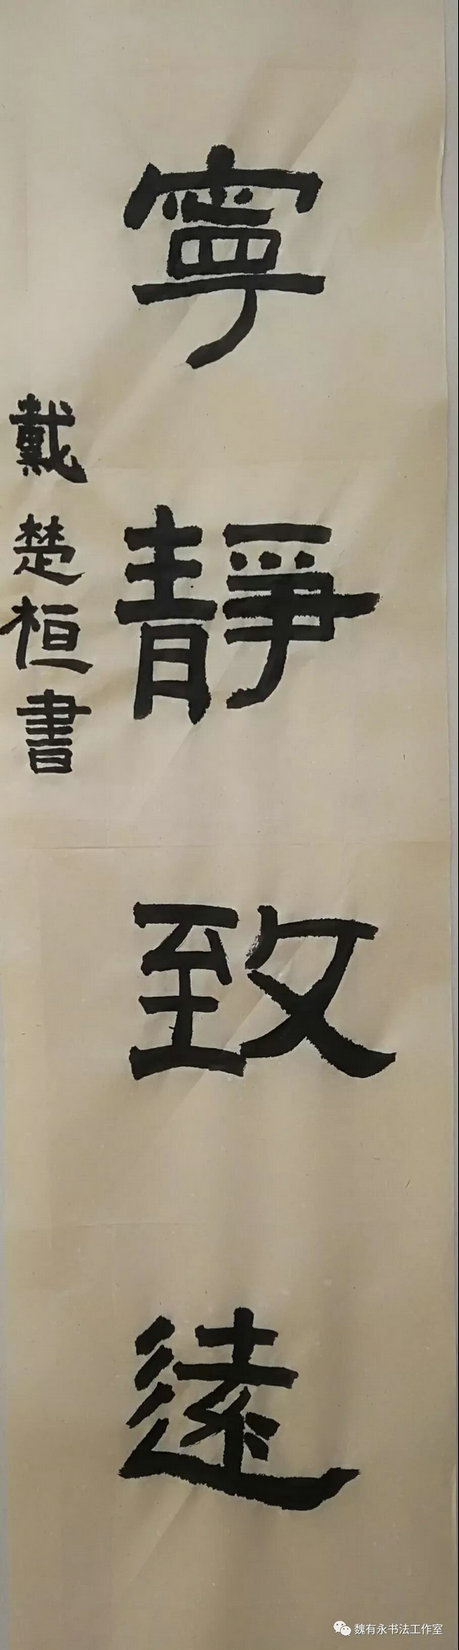 寧靜致遠
戴楚桓書
魏有永书法工作室